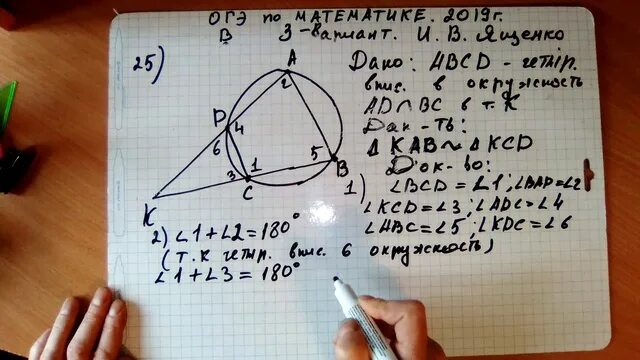 ОГЭ по МАТЕМАТИКЕ. 2019г.
В 3-вариант. И. В. Ященко
25)
A
2
D
4
6
1
3
C
5
B
K
Дако: ABCD - четыр.
впис. в окружность
AD∩BC в т. К
Док-ть:
Δ KAB ~ Δ KCD
Док-во:
1) ∠BCD = ∠1; ∠BAD = ∠2
∠KCD = ∠3; ∠ADC = ∠4
∠ABC = ∠5; ∠KDC = ∠6
2) ∠1 + ∠2 = 180°
(т.к четыр. впис. в окружность)
∠1 + ∠3 = 180°